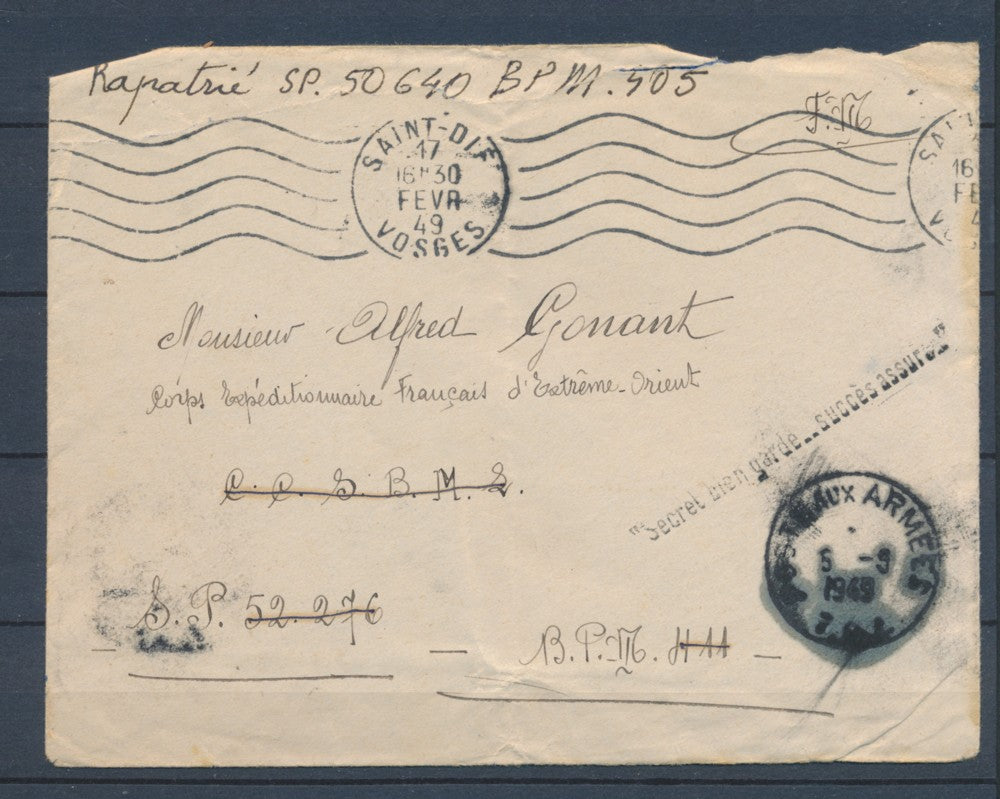 Rapatrié SP. 50640 BPM. 405
F.M
SAINT-DIÉ
17
16H30
FEVR
49
VOSGES
SAINT
16
FE
4
VOSG
Monsieur Alfred Gonant
Corps Expéditionnaire Français d'Extrême-Orient
"Secret bien gardé...succès assuré"
C. C. S. B. M. 2.
POSTE AUX ARMEES
5 -9
1949
S.P. 52.276
B.P.M. 411